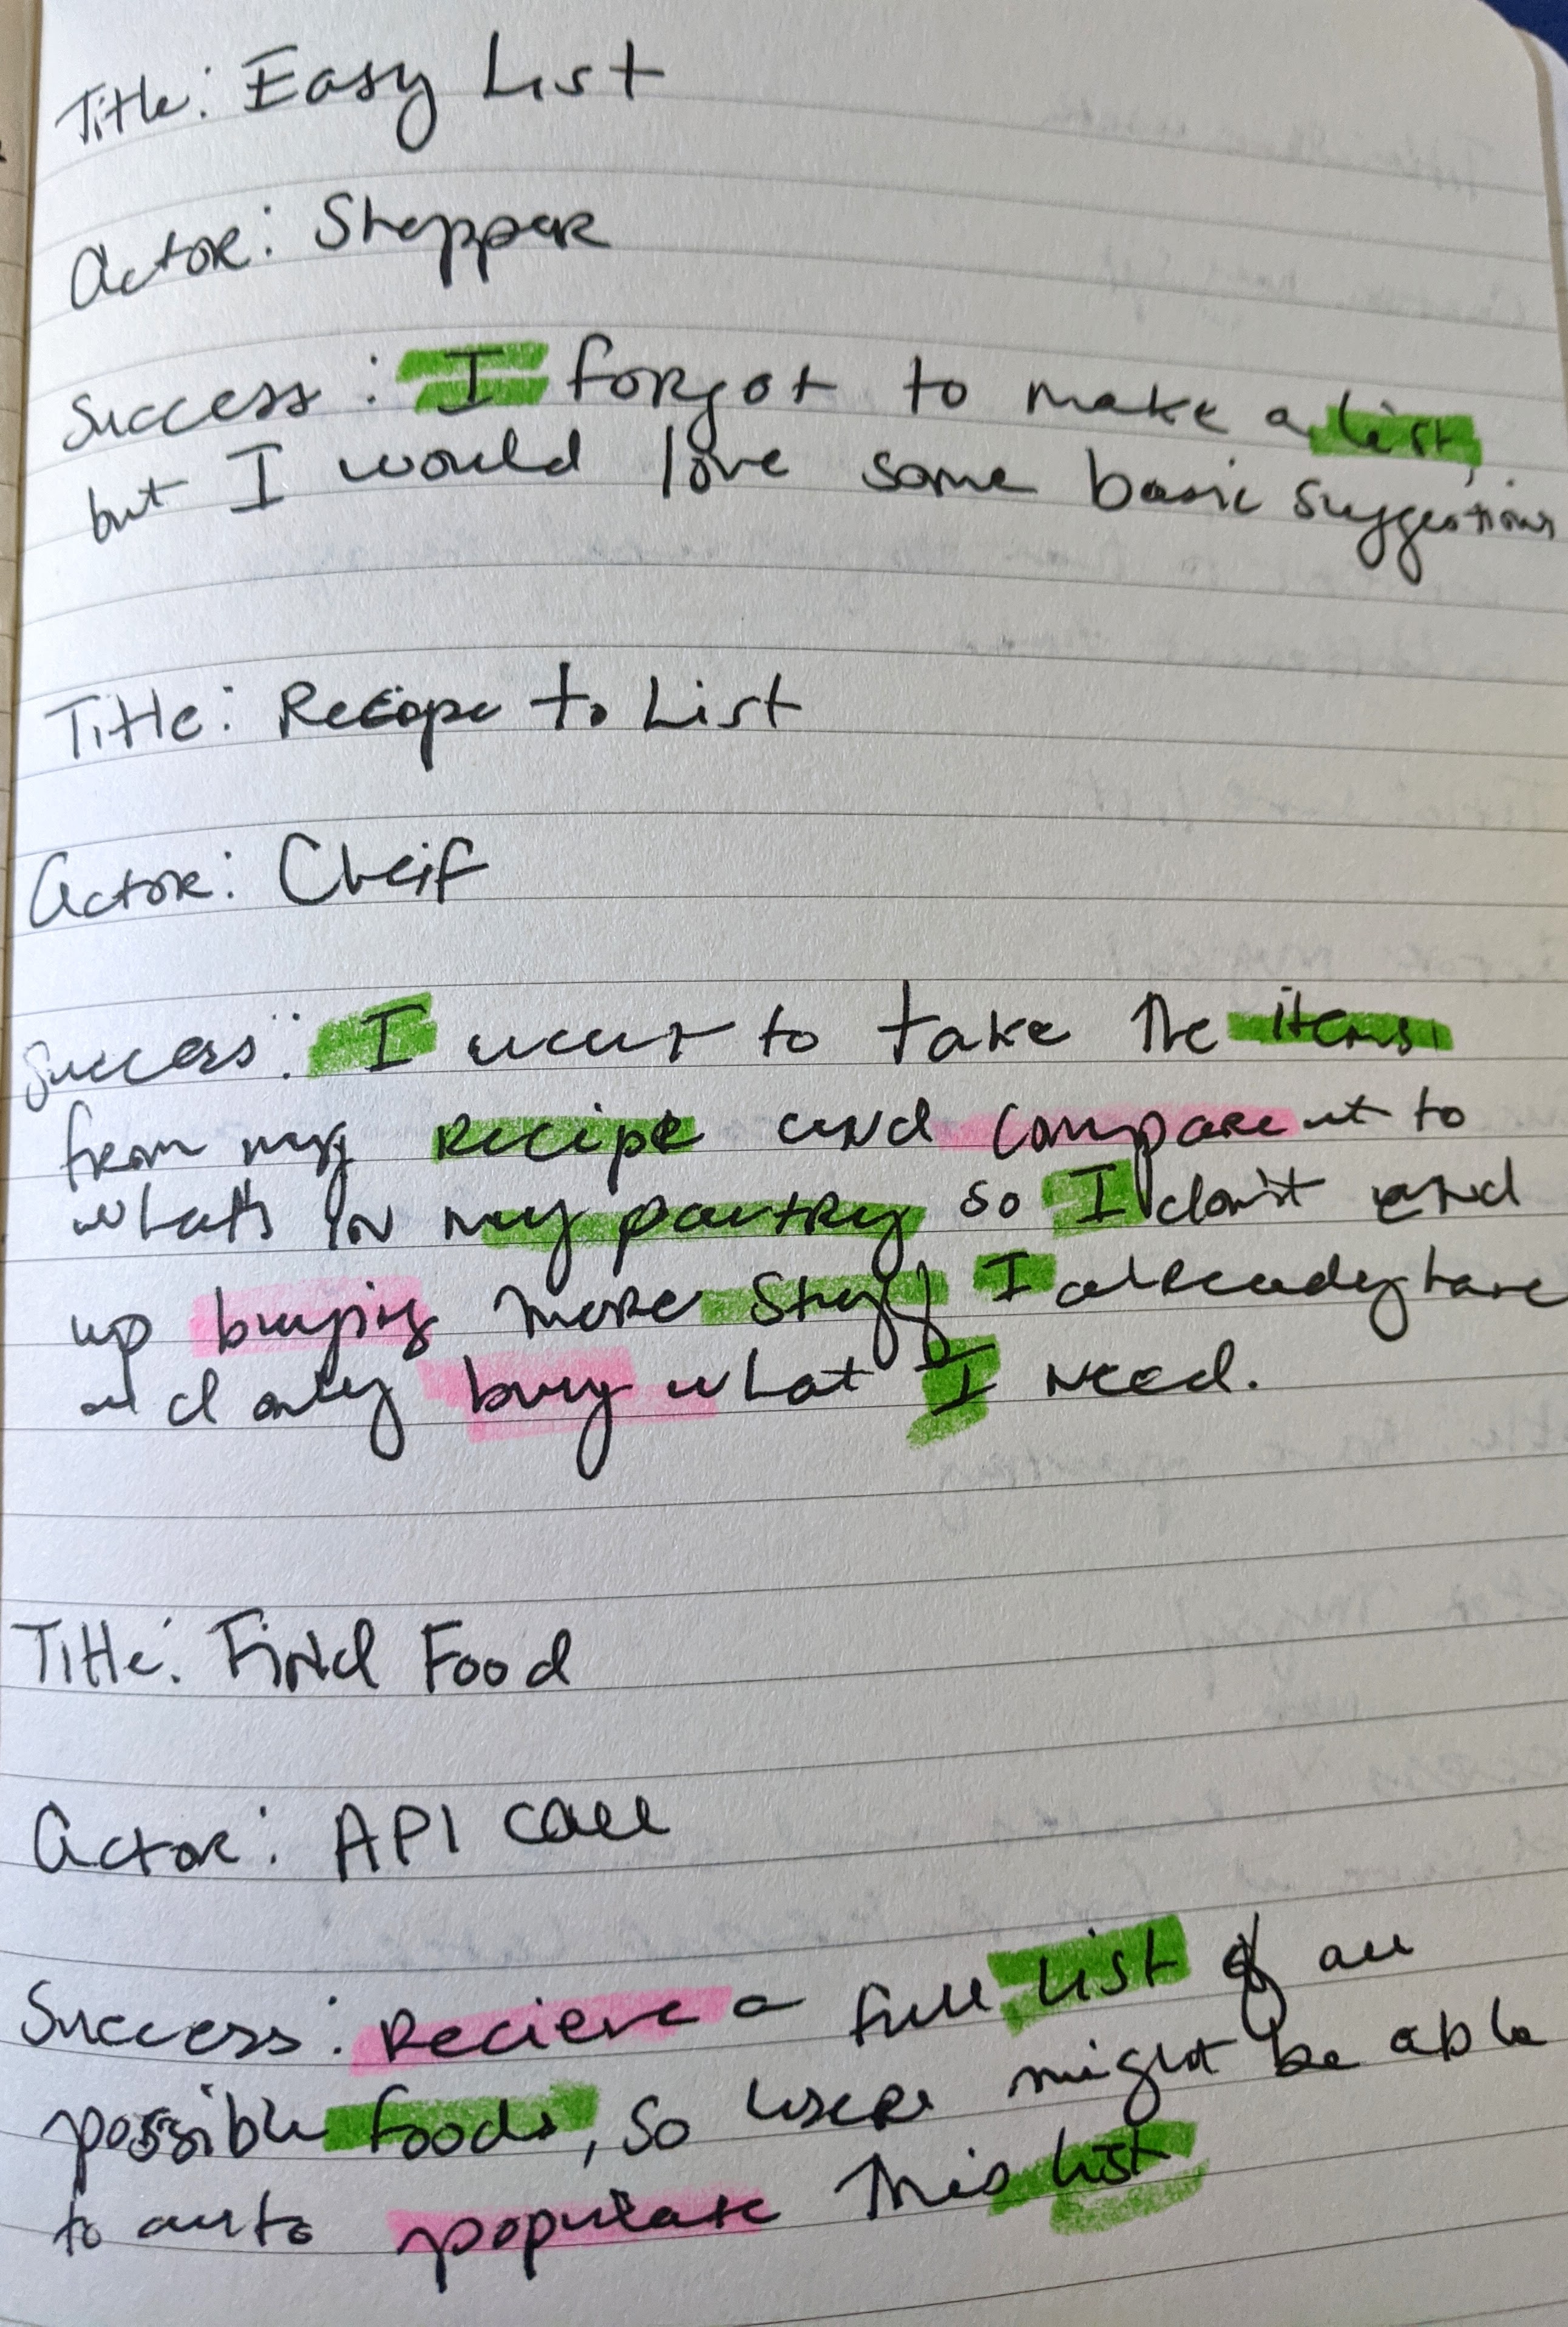 Title: Easy List
Actor: Shopper
Success: I forgot to make a list,
but I would love some basic suggestions
Title: Recipe to List
Actor: Cheif
Success: I want to take the items
from my recipe and compare it to
what's in my pantry so I don't end
up buying more stuff I already have
and only buy what I need.
Title: Find Food
Actor: API call
Success: Recieve a full list of all
possible foods, so users might be able
to auto populate this list